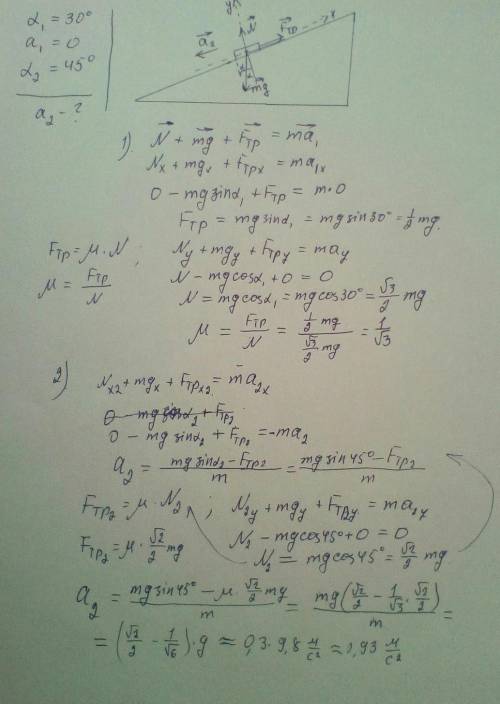 α₁ = 30°
a₁ = 0
α₂ = 45°
a₂ - ?
y
N
Fтр
x
a₂
mg
1). N + mg + Fтр = ma₁
Nx + mgx + Fтрx = ma₁x
0 - mg sinα₁ + Fтр = m·0
Fтр = mg sinα₁ = mg sin30° = 1/2 mg.
Fтр = μ·N ; Ny + mgy + Fтрy = may
μ = Fтр/N
N - mg cosα₁ + 0 = 0
N = mg cosα₁ = mg cos30° = √3/2 mg
μ = Fтр/N = (1/2 mg)/(√3/2 mg) = 1/√3
2) Nx2 + mgx + Fтрx2 = ma₂x
0 - mg sinα₂ + Fтр₂
0 - mg sinα₂ + Fтр₂ = -ma₂
a₂ = (mg sinα₂ - Fтр2)/m = (mg sin45° - Fтр2)/m
Fтр2 = μ·N₂ ; N₂y + mgy + Fтр2y = ma₂y
N₂ - mg cos45° + 0 = 0
Fтр2 = μ·√2/2 mg
N₂ = mg cos45° = √2/2 mg
a₂ = (mg sin45° - μ·√2/2 mg)/m = mg(√2/2 - 1/√3·√2/2)/m =
= (√2/2 - 1/√6)·g ≈ 0,3·9,8 м/с² ≈ 2,93 м/с²